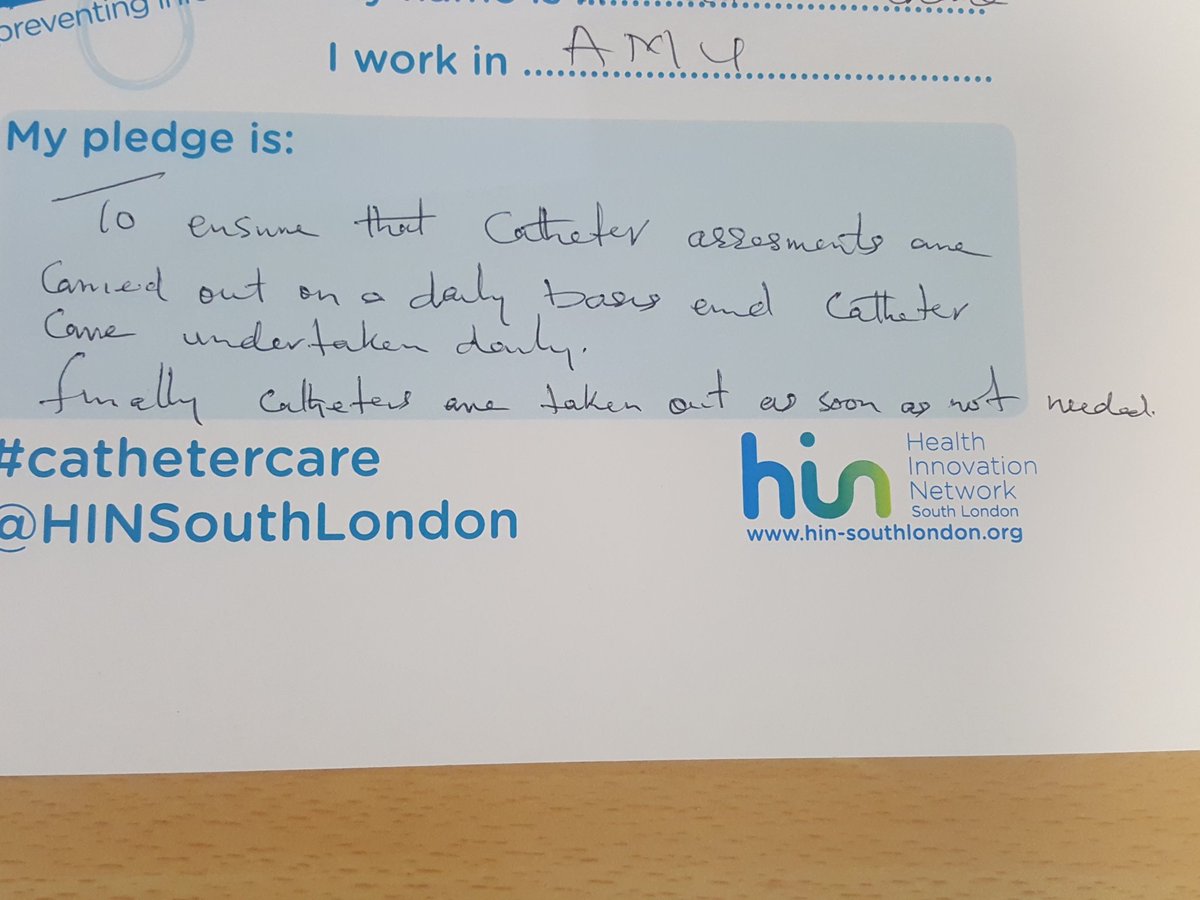 preventing
name is
I work in AMU
My pledge is:
To ensure that Catheter assesments are
Carried out on a daily basis and Catheter
Care undertaken daily.
finally catheters are taken out as soon as not needed.
#cathetercare
@HINSouthLondon
hin
Health
Innovation
Network
South London
www.hin-southlondon.org